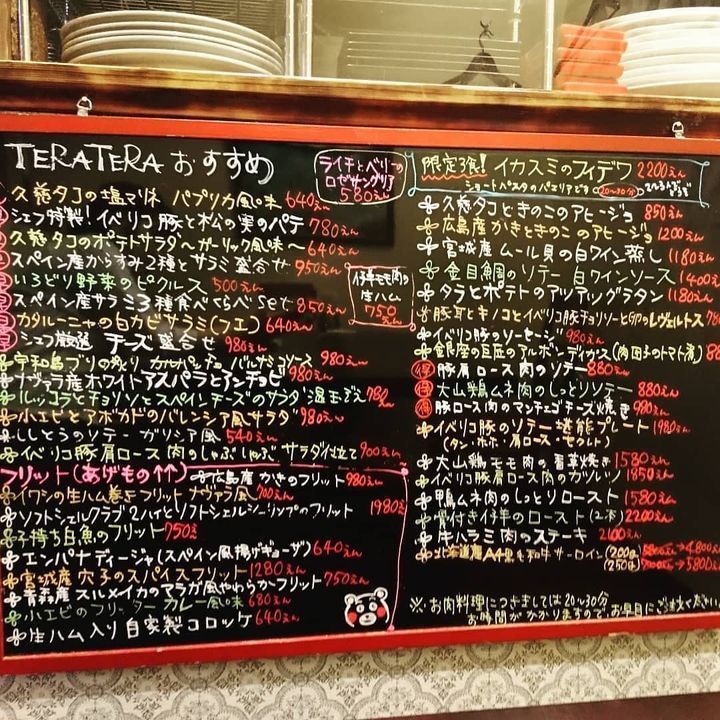 TERATERA おすすめ
ライチとベリーの
ロゼサングリア
580えん
久慈タコの塩マリネ パプリカ風味 640えん
シェフ特製!イベリコ豚と松の実のパテ 780えん
久慈タコのポテトサラダ〜ガーリック風味〜 640えん
スペイン産からすみ2種とサラミ盛合せ 950えん
いろどり野菜のピクルス 500えん
スペイン産サラミ3種食べくらべset 850えん
カタルーニャの白カビサラミ(フエ) 640えん
シェフ厳選 チーズ盛合せ 980えん
仔羊モモ肉の
生ハム
750
えん
宇和島ブリの炙り カルパッチョ バルサミコソース 980えん
ナヴァラ産ホワイトアスパラとアンチョビ 980えん
ルッコラとチョリソとスペインチーズのサラダ 温玉のせ 780えん
小エビとアボカドのバレンシア風サラダ 980えん
ししとうのソテー ガリシア風 540えん
イベリコ豚肩ロース肉のしゃぶしゃぶ サラダ仕立て 900えん
フリット(あげもの↑↑)
広島産かきのフリット 980えん
イワシの生ハム巻きフリット ナヴァラ風 700えん
ソフトシェルクラブ2ハイとソフトシェルシュリンプのフリット 1980えん
子持ち白魚のフリット 750えん
エンパナディージャ(スペイン風揚げギョーザ) 640えん
宮城産 穴子のスパイスフリット 1280えん
青森産 スルメイカのアラガ風やわらかフリット 750えん
小エビのフリッター カレー風味 680えん
生ハム入り自家製コロッケ 640えん
限定3食! イカスミのフィデワ 2200えん
ショートパスタのパエリアです 20〜30分
久慈タコときのこのアヒージョ 850えん
広島産かきときのこのアヒージョ 1200えん
宮城産 ムール貝の白ワイン蒸し 1180えん
金目鯛のソテー 白ワインソース 1400えん
タラとポテトのアツアツグラタン 1180えん
豚耳とキノコとイベリコ豚チョリソーと卵のレヴェルトス
イベリコ豚のソーセージ 980えん
金銀座の巨匠のアルボンディガス(肉団子のトマト煮)
得 豚肩ロース肉のソテー 880えん
得 大山鶏ムネ肉のしっとりソテー 880えん
得 豚ロース肉のマンチェゴチーズ焼き 980えん
イベリコ豚のソテー堪能プレート 1980えん
(タン・ホホ・肩ロース・セクレト)
大山鶏モモ肉の香草焼き 1580えん
イベリコ豚肩ロース肉のカツレツ 1850えん
鴨ムネ肉のしっとりロースト 1580えん
骨付き仔羊のロースト(2本) 2200えん
牛ハラミ肉のステーキ 2100えん
北海道産A4黒毛和牛サーロイン(200g) →4800えん
(250g) →5800えん
※お肉料理につきましては20〜30分
お時間がかかりますので、お早目にご注文ください